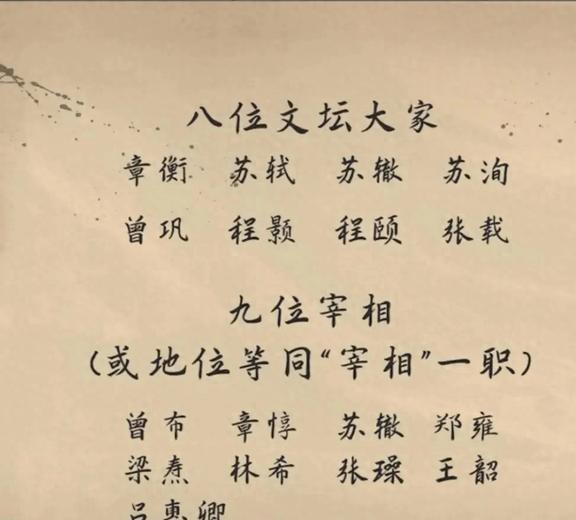 八位文坛大家
章衡 苏轼 苏辙 苏洵
曾巩 程颢 程颐 张载
九位宰相
（或地位等同“宰相”一职）
曾布 章惇 苏辙 郑雍
梁焘 林希 张璪 王韶
吕惠卿